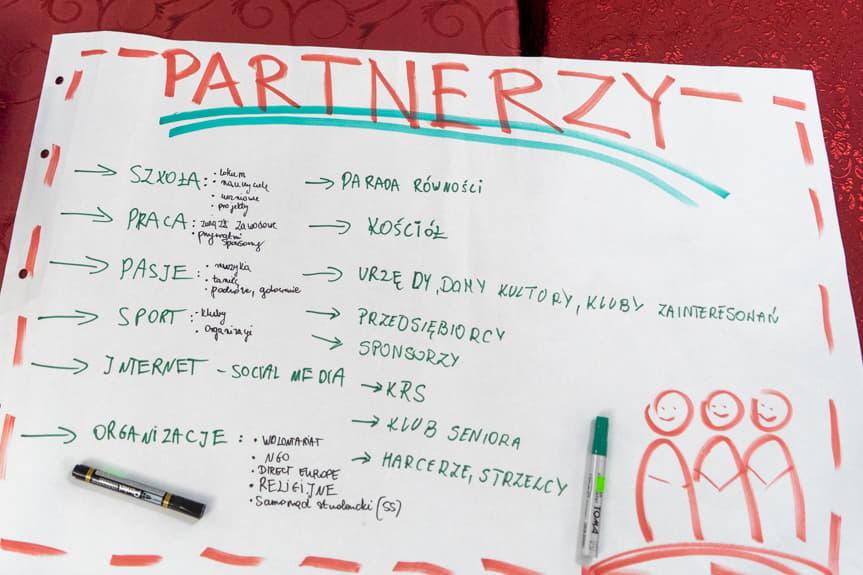 PARTNERZY
→ SZKOŁA: • lokum
• nauczyciele
• uczniowie
• projekty
→ PRACA: zawodowe
• prywatni
sponsorzy
→ PASJE: • muzyka
• taniec
• podróże, gotowanie
→ SPORT: - kluby
• organizacje
→ INTERNET - SOCIAL MEDIA
→ ORGANIZACJE: • WOLONTARIAT
• NGO
• DIRECT EUROPE
• RELIGIJNE
• Samorząd studencki (SS)
→ PARADA RÓWNOŚCI
→ KOŚCIÓŁ
→ URZĘDY, DOMY KULTURY, KLUBY ZAINTERESOWAŃ
→ PRZEDSIĘBIORCY
→ SPONSORZY
→ KRS
→ KLUB SENIORA
→ HARCERZE, STRZELCY
TOMA